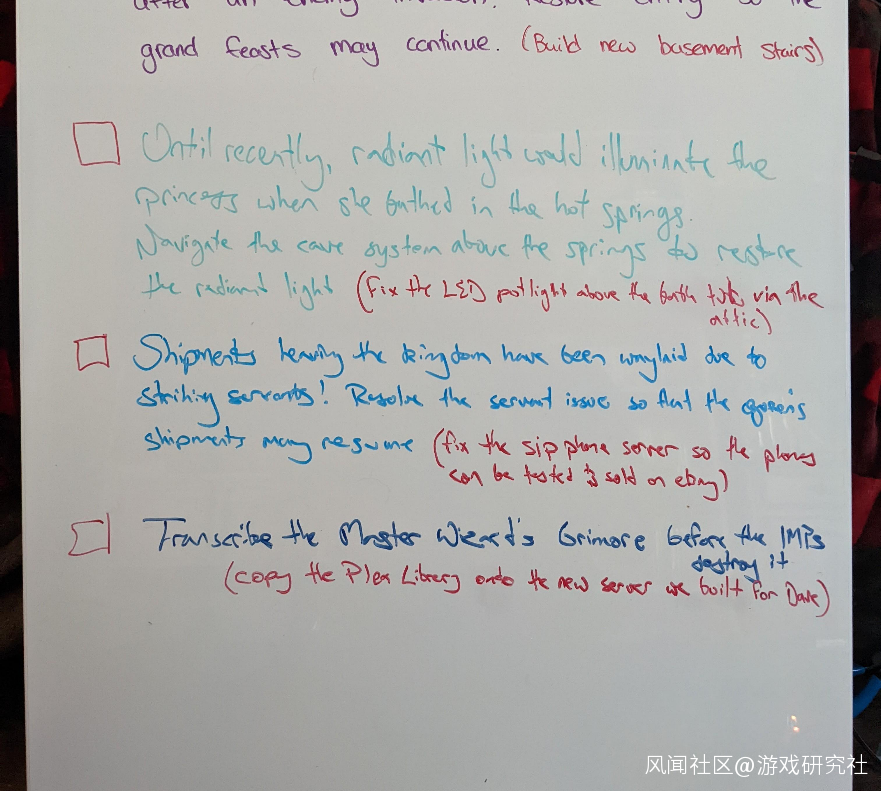 after an enemy
grand feasts may continue. (Build new basement stairs)
Until recently, radiant light would illuminate the
princess when she bathed in the hot springs.
Navigate the cave system above the springs to restore
the radiant light (fix the LED potlight above the bath tub via the
attic)
Shipments leaving the kingdom have been waylaid due to
striking servants! Resolve the servant issue so that the queen's
shipments may resume (fix the sip phone server so the phones
can be tested & sold on ebay)
Transcribe the Master Wizard's Grimore before the IMPs
destroy it.
(copy the Plex Library onto the new server we built for Dave)
风闻社区@游戏研究社